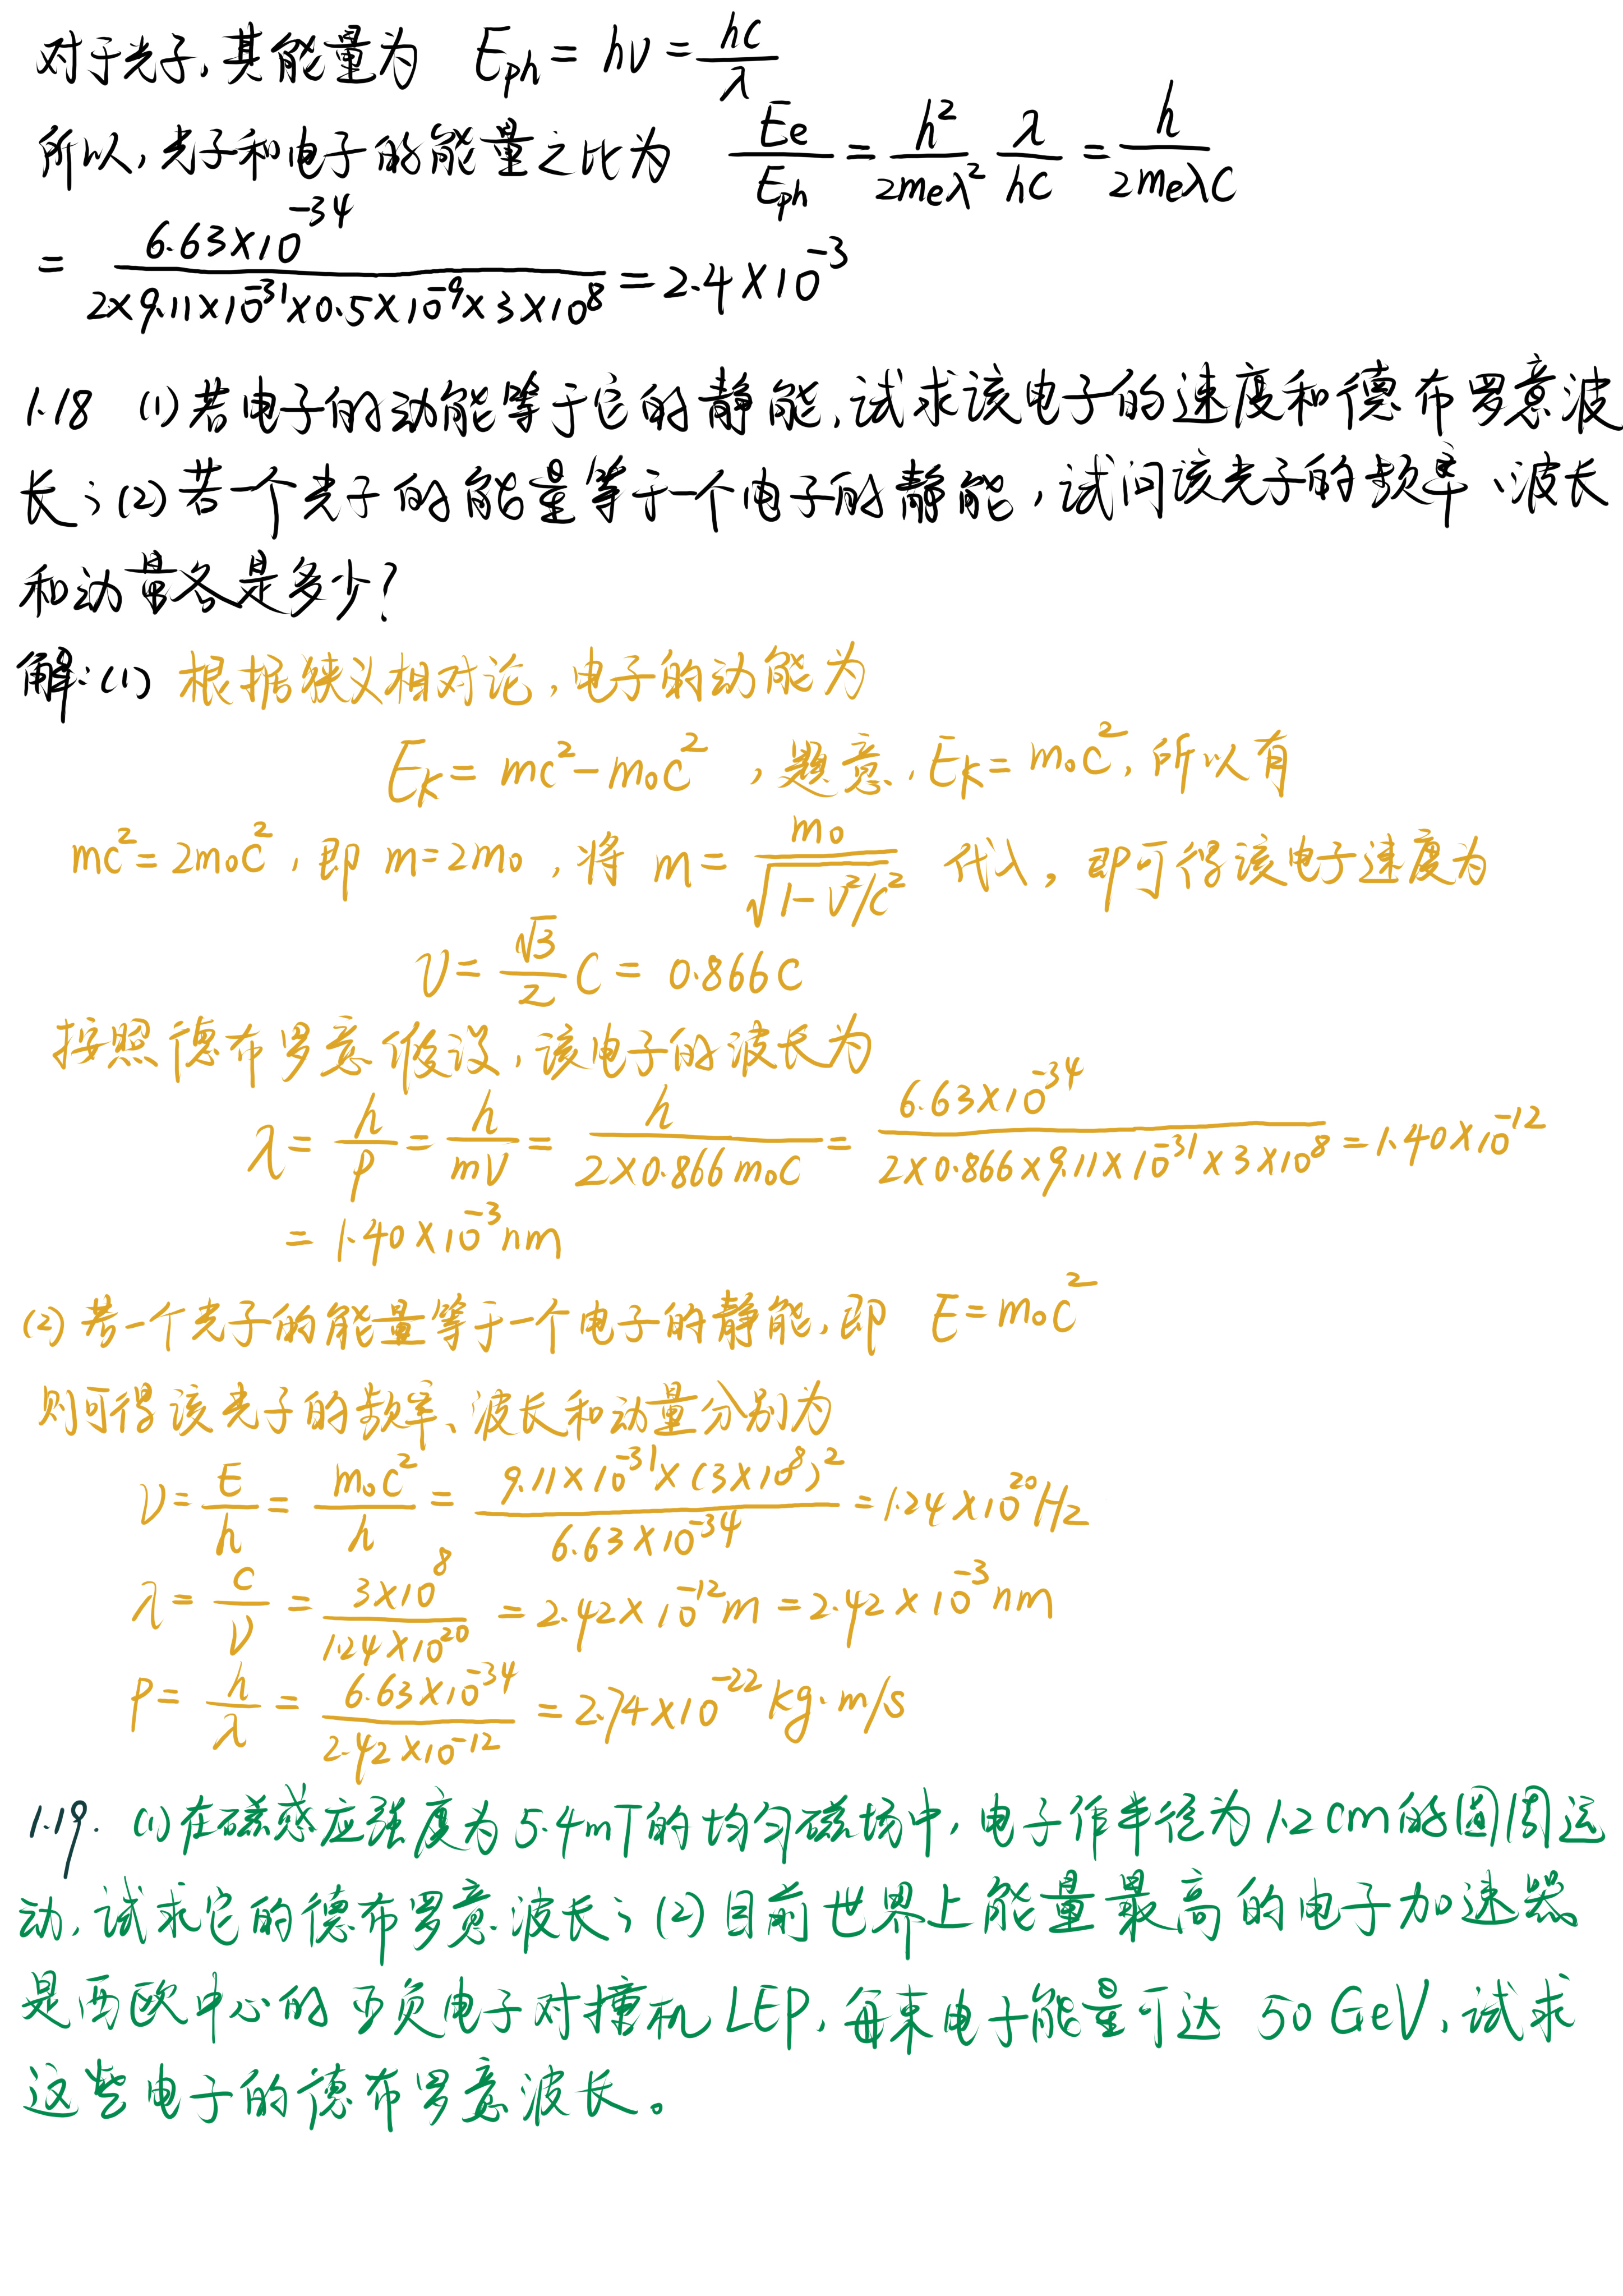 对于光子,其能量为 Eph = hν = hc/λ
所以,光子和电子的能量之比为 Ee/Eph = h²/2meλ² λ/hc = h/2meλc
= 6.63×10⁻³⁴/2×9.11×10⁻³¹×0.5×10⁻⁹×3×10⁸ = 2.4×10⁻³
1.18 (1)若电子的动能等于它的静能,试求该电子的速度和德布罗意波
长;(2)若一个光子的能量等于一个电子的静能,试问该光子的频率、波长
和动量各是多少?
解:(1) 根据狭义相对论,电子的动能为
Ek = mc² - m₀c² ,题意,Ek = m₀c²,所以有
mc² = 2m₀c²,即 m = 2m₀,将 m = m₀/√1-v²/c² 代入,即可得该电子速度为
v = √3/2 c = 0.866c
按照德布罗意假设,该电子的波长为
λ = h/p = h/mv = h/2×0.866m₀c = 6.63×10⁻³⁴/2×0.866×9.11×10⁻³¹×3×10⁸ = 1.40×10⁻¹²
= 1.40×10⁻³nm
(2) 若一个光子的能量等于一个电子的静能,即 E = m₀c²
则可得该光子的频率、波长和动量分别为
ν = E/h = m₀c²/h = 9.11×10⁻³¹×(3×10⁸)²/6.63×10⁻³⁴ = 1.24×10²⁰Hz
λ = c/ν = 3×10⁸/1.24×10²⁰ = 2.42×10⁻¹²m = 2.42×10⁻³nm
P = h/λ = 6.63×10⁻³⁴/2.42×10⁻¹² = 2.74×10⁻²²kg·m/s
1.19. (1)在磁感应强度为5.4mT的均匀磁场中,电子作半径为1.2cm的圆周运
动,试求它的德布罗意波长;(2)目前世界上能量最高的电子加速器
是西欧中心的正负电子对撞机LEP,每束电子能量可达 50GeV,试求
这些电子的德布罗意波长。